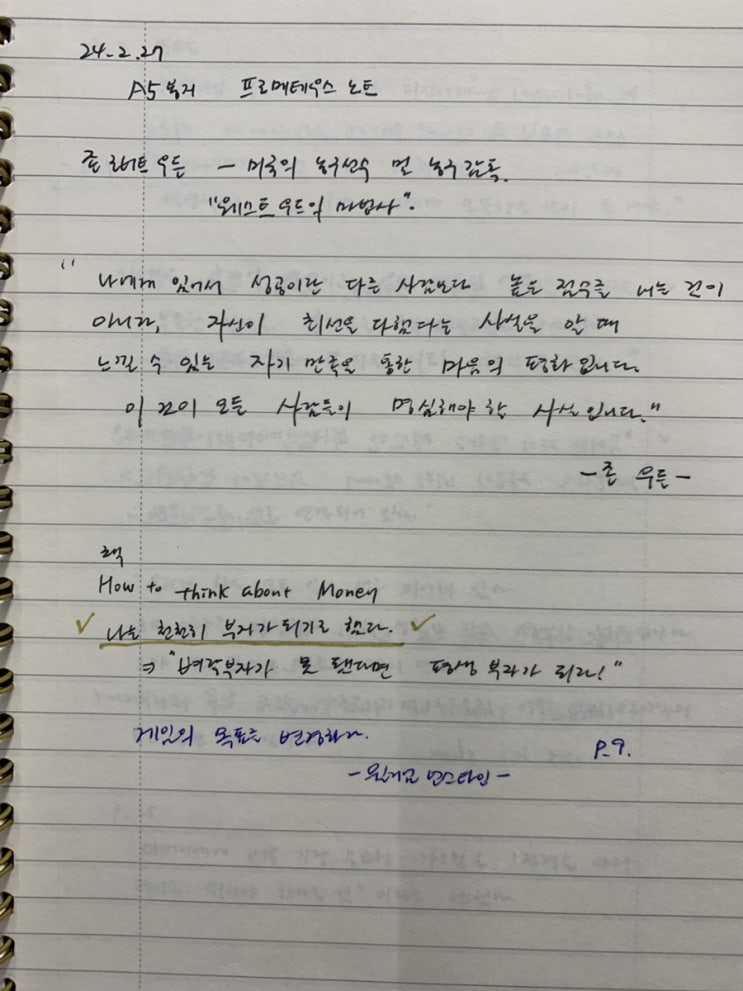 24.2.27
A5 프로메테우스 노트
존 로버트 우든 - 미국의 농구선수 및 농구감독.
"웨스트우드의 마법사".
" 나에게 있어서 성공이란 다른 사람보다 높은 점수를 내는 것이
아니라, 자신이 최선을 다했다는 사실을 알 때
느낄 수 있는 자기 만족을 통한 마음의 평화입니다.
이것이 모든 사람들이 명심해야 할 사실입니다."
-존 우든-
책
How to think about Money
✓ 나는 천천히 부자가 되기로 했다. ✓
⇒ "벼락부자가 못 됐다면 평생 부자가 되라!"
게임의 목표는 변경하라. P.9.